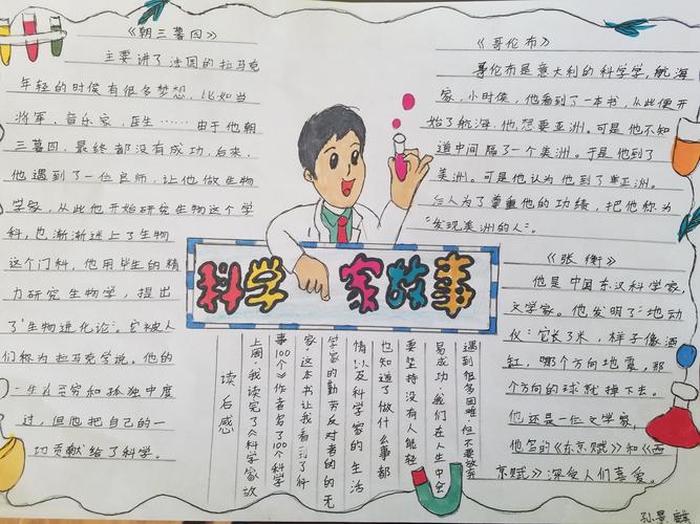 《朝三暮四》
主要讲了法国的拉马克
年轻的时候有很多梦想，比如当
将军，音乐家，医生……由于他朝
三暮四，最终都没有成功，后来，
他遇到了一位良师，让他做生物
学家，从此他开始研究生物这个学
科，也渐渐迷上了生物
这个门科，他用毕生的精
力研究生物学，提出
了"生物进化论"。它被人
们称为拉马克学说。他的
一生在贫穷和孤独中度
过，但他把自己的一
切贡献给了科学。
《哥伦布》
哥伦布是意大利的科学学，航海
家，小时侯，他看到了一本书，从此便开
始了航海，他想要亚洲。可是他不知
道中间隔了一个美洲。于是他到了
美洲。可是他认为他到了亚洲。
后人为了尊重他的功绩，把他称为
"发现美洲的人"。
《张衡》
他是中国东汉科学家，
文学家。他发明了：地动
仪：它长了米，样子像酒
缸，哪个方向地震，那
个方向的球就掉下去。
他还是一位文学家，
他写的《东京赋》和《西
京赋》深受人们喜爱。
科学家故事
读后感
上周，我读完了《科学家故
事100个》作者写了100个科学
家，这本书让我看到了科
学家的勤劳反对者的的无
情以及科学家的生活
也知道了做什么事都
要坚持没有人能轻
易成功，我们在人生中会
遇到很多困难，但不要放弃
孙景